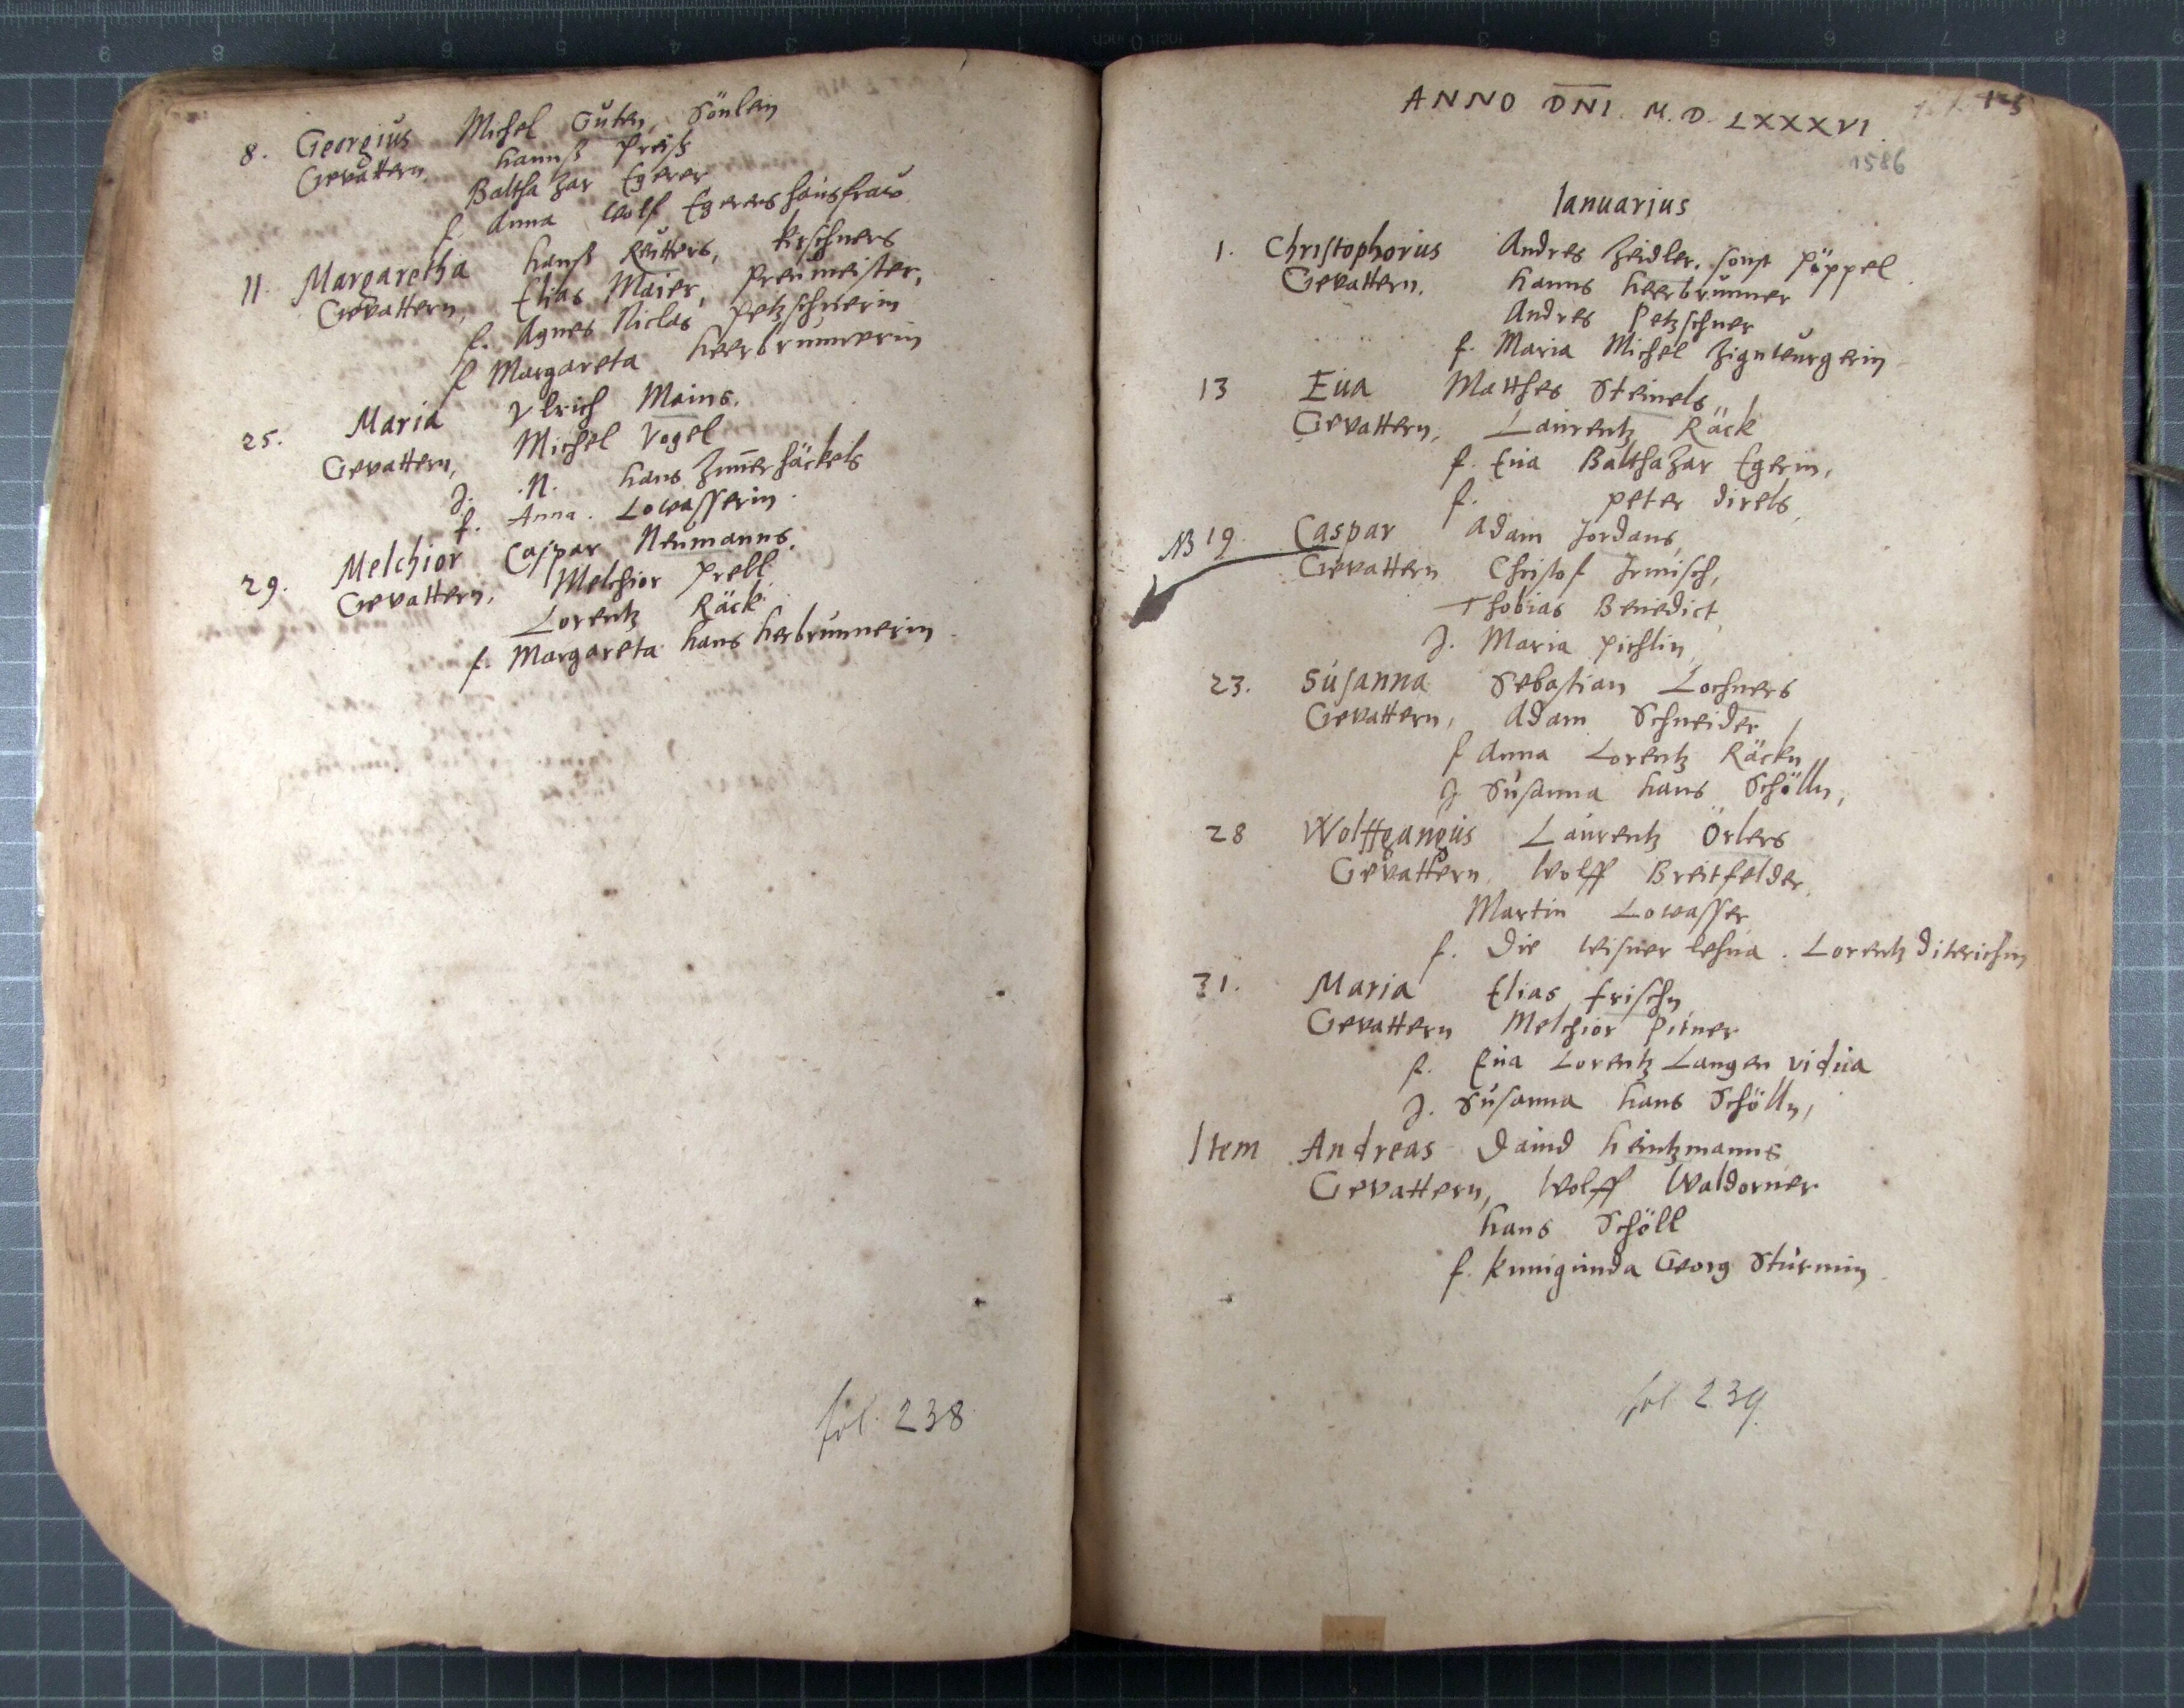 8. Georgius Michel Guten, Sönlein
Gevattern hannß Preiß
Balthazar Egerer
f. Anna Wolf Egerers hausfraw
11. Margaretha hanß Reutters, kirschners
Gevattern, Elias Maier, Preumeister,
f. Agnes Niclas Petzschnerin
f Margareta heerbrunnerin
25. Maria Vlrich Mains.
Gevattern, Michel Vogel
J. .N. hans Zim̄erhäckels
f. Anna. Lowasserin.
29. Melchior Caspar Neumanns.
Gevattern, Melchior Prell
Lorentz Räck
f. Margareta hans herbrunnerin
fol. 238
ANNO DNI. M. D. LXXXVI.
1586
Ianuarius
1. Christophorus Andres Zeidler, sonst Pöppel.
Gevattern. hanns heerbrunner
Andres Petzschner
f. Maria Michel
13 Eua Matthes Steinels
Gevattern, Laurentz Räck
f. Eua Balthazar Egerin,
f. peter direls,
NB 19. Caspar Adam Jordans,
Gevattern Christof Irmisch,
Thobias Benedict,
J. Maria Pichlin,
23. Susanna Sebastian Lochners
Gevattern, Adam Schneider
f Anna Lorentz Räckn
J Susanna hans Schölln,
28 Wolffgangus Laurentz Örlers
Gevattern, Wolff Breitfelder,
Martin Lowasser
f. Die Wisner lehna. Lorentz Diterichin
31. Maria Elias Frischn
Gevattern Melchior Pirner
f. Eua Lorentz Langen vidua
J. Susanna hans Schölln,
Item Andreas Dauid heintzmanns
Gevattern, Wolff Waldorner
hans Schöll
f. kunigunda Georg Sturmin
fol 239